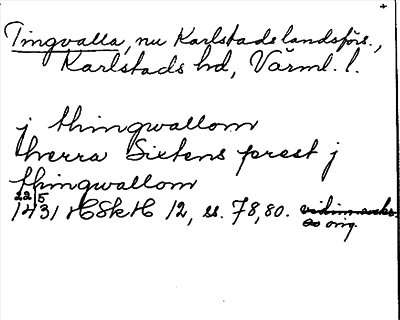 Tingvalla, nu Karlstads landsförs.,
Karlstads hd, Värml. l.
j thingwallom
herra Sixtens prest j
thingwallom
22/5
1431 HSkH 12, ss. 78, 80.
as orig.